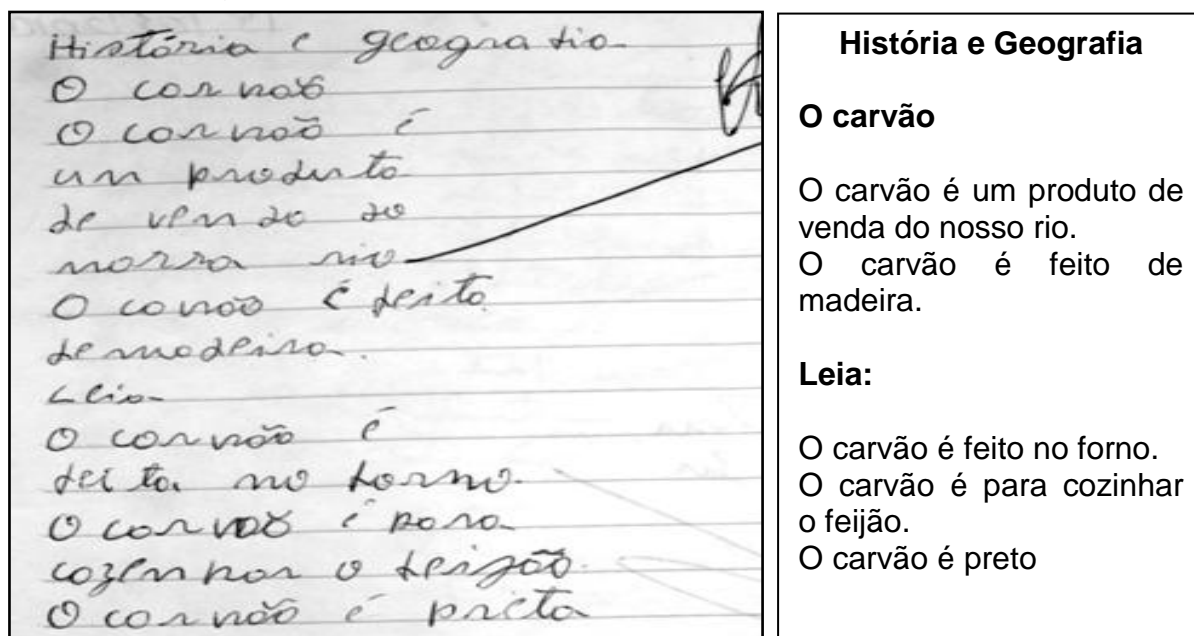 História e geografia
O carvão
O carvão é
um produto
de venda do
nosso rio
O cavão é feito
de madeira.
Leia
O carvão é
feito no forno.
O carvão é para
cozenhar o feijão.
O carvão é preto
História e Geografia
O carvão
O carvão é um produto de
venda do nosso rio.
O carvão é feito de
madeira.
Leia:
O carvão é feito no forno.
O carvão é para cozinhar
o feijão.
O carvão é preto